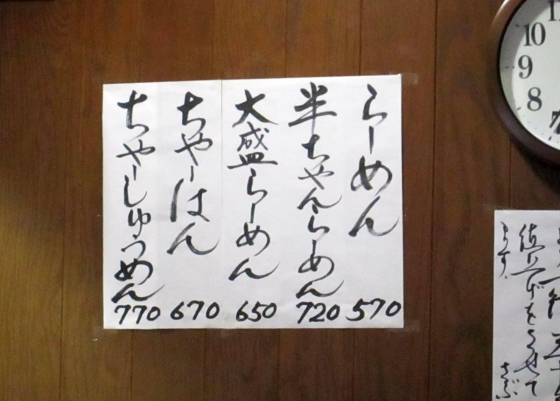 らーめん 570
半ちゃんらーめん 720
大盛らーめん 650
ちゃーはん 670
ちゃーしゅうめん 770
10
9
8